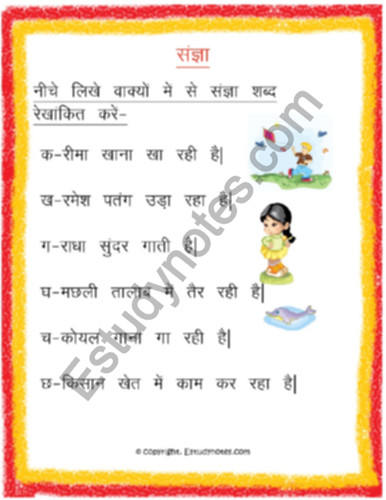 संज्ञा
नीचे लिखे वाक्यों में से संज्ञा शब्द
रेखांकित करें-
क-रीमा खाना खा रही है|
ख-रमेश पतंग उड़ा रहा है|
ग-राधा सुंदर गाती है|
घ-मछली तालाब में तैर रही है|
च-कोयल गाना गा रही है|
छ-किसान खेत में काम कर रहा है|
Estudynotes.com
© Copyright. Estudynotes.com